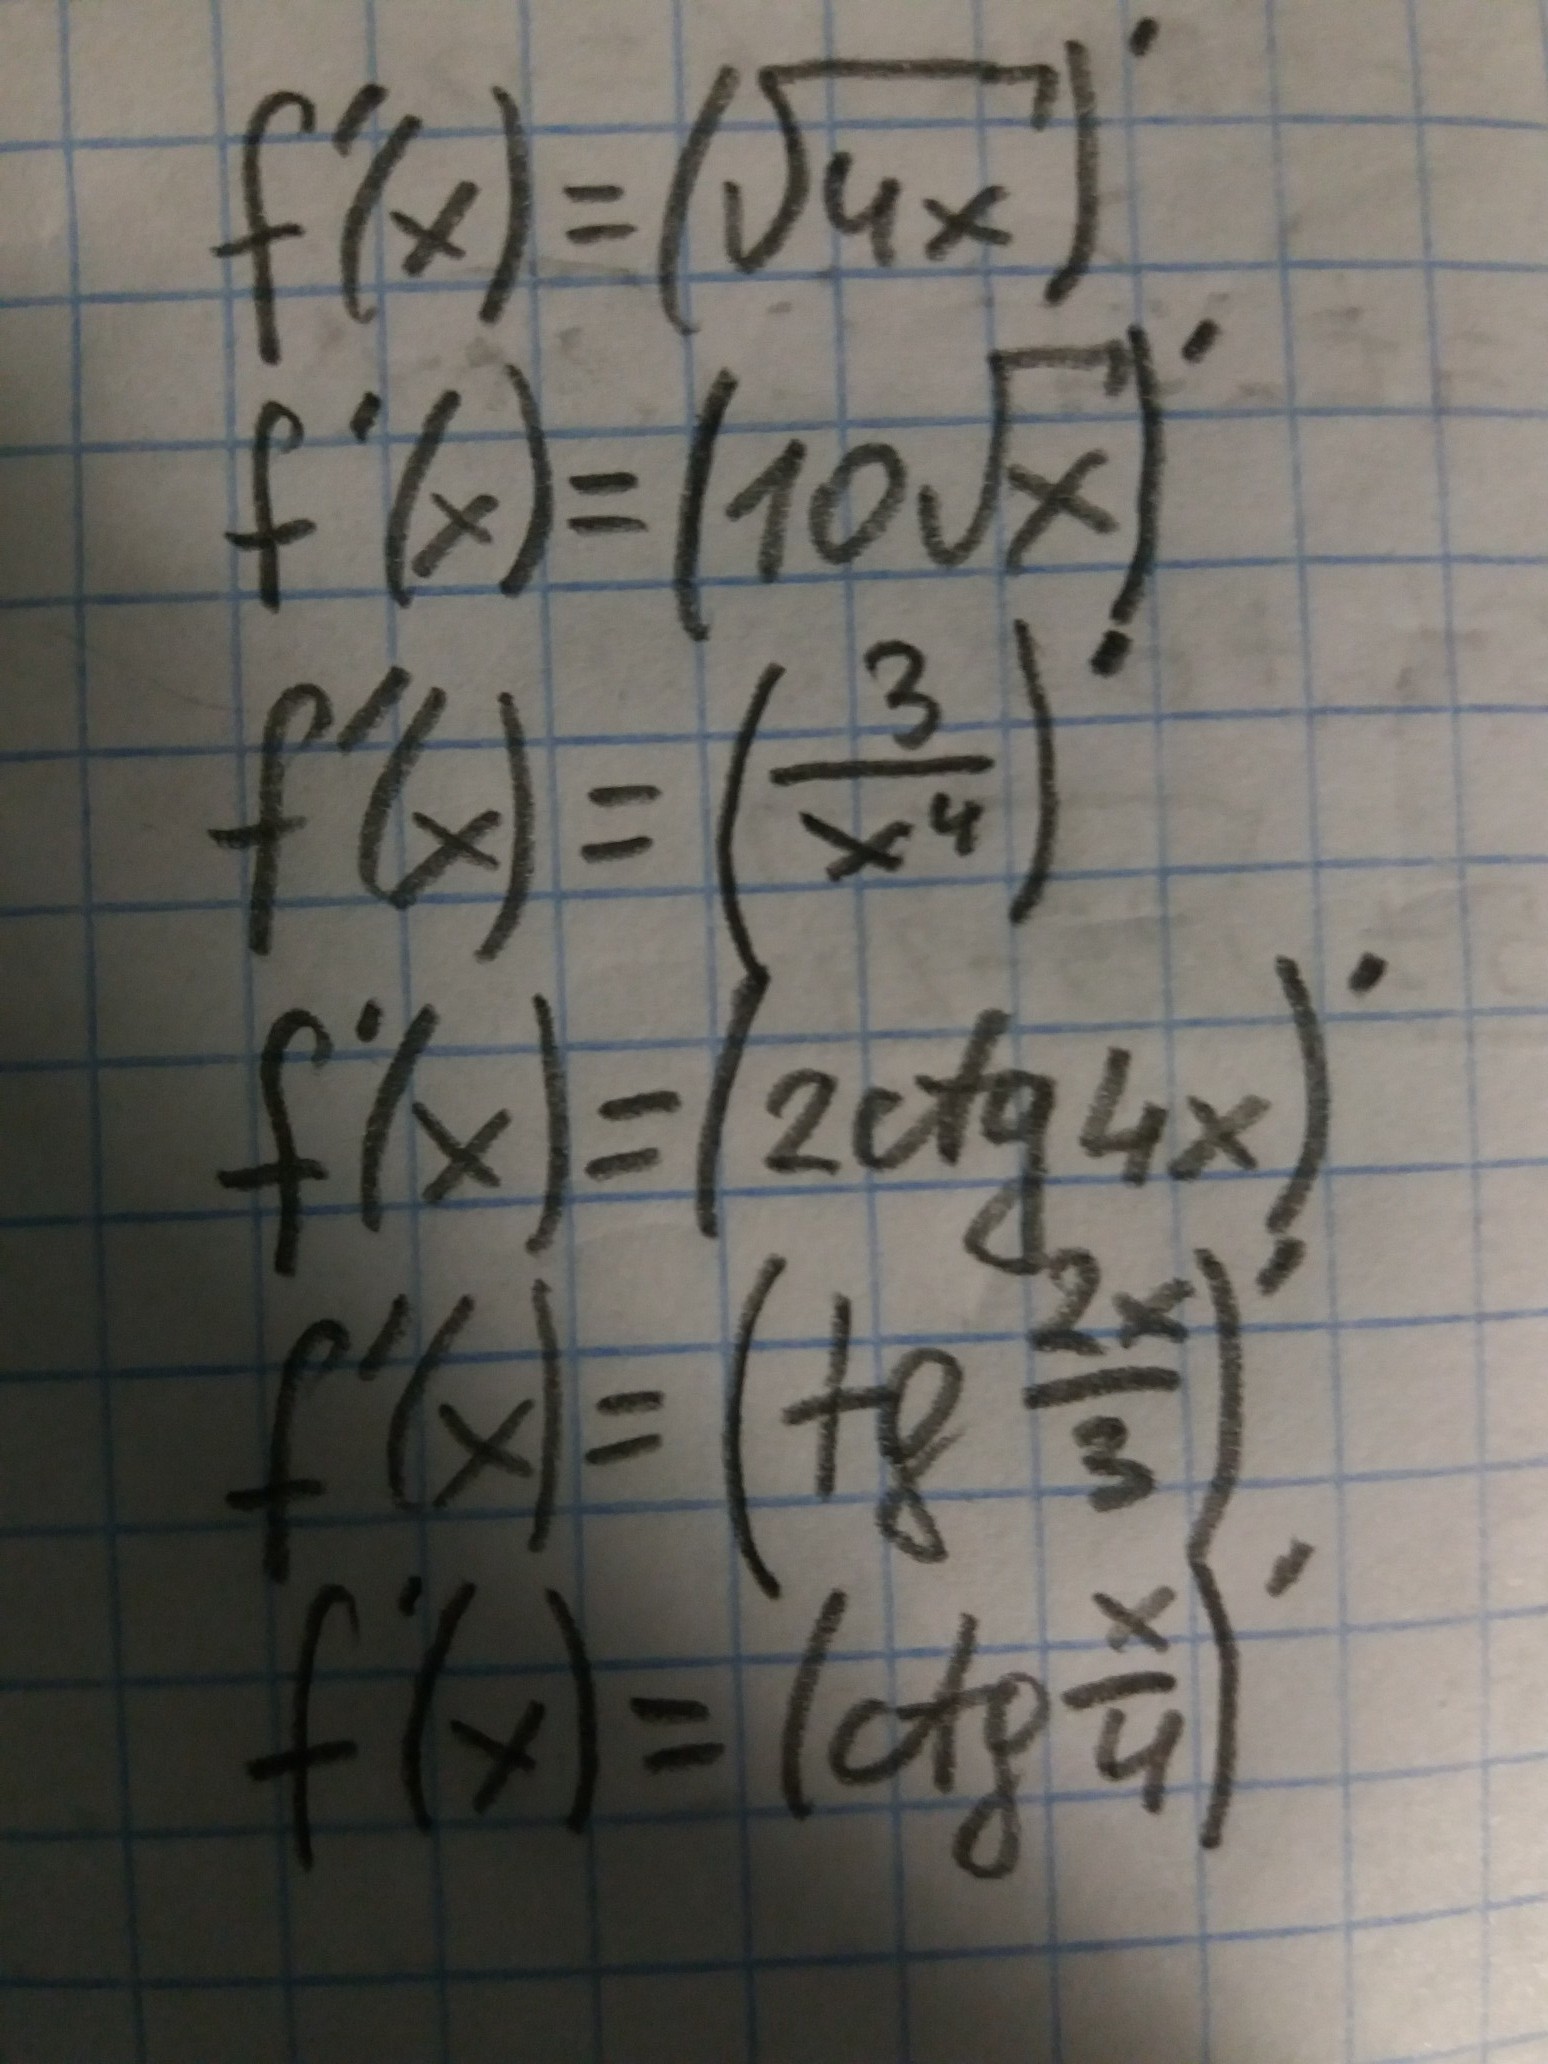 f'(x) = (√4x)'
f'(x) = (10√x)'
f'(x) = (3/x⁴)'
f'(x) = (2ctg 4x)'
f'(x) = (tg 2x/3)'
f'(x) = (ctg x/4)'